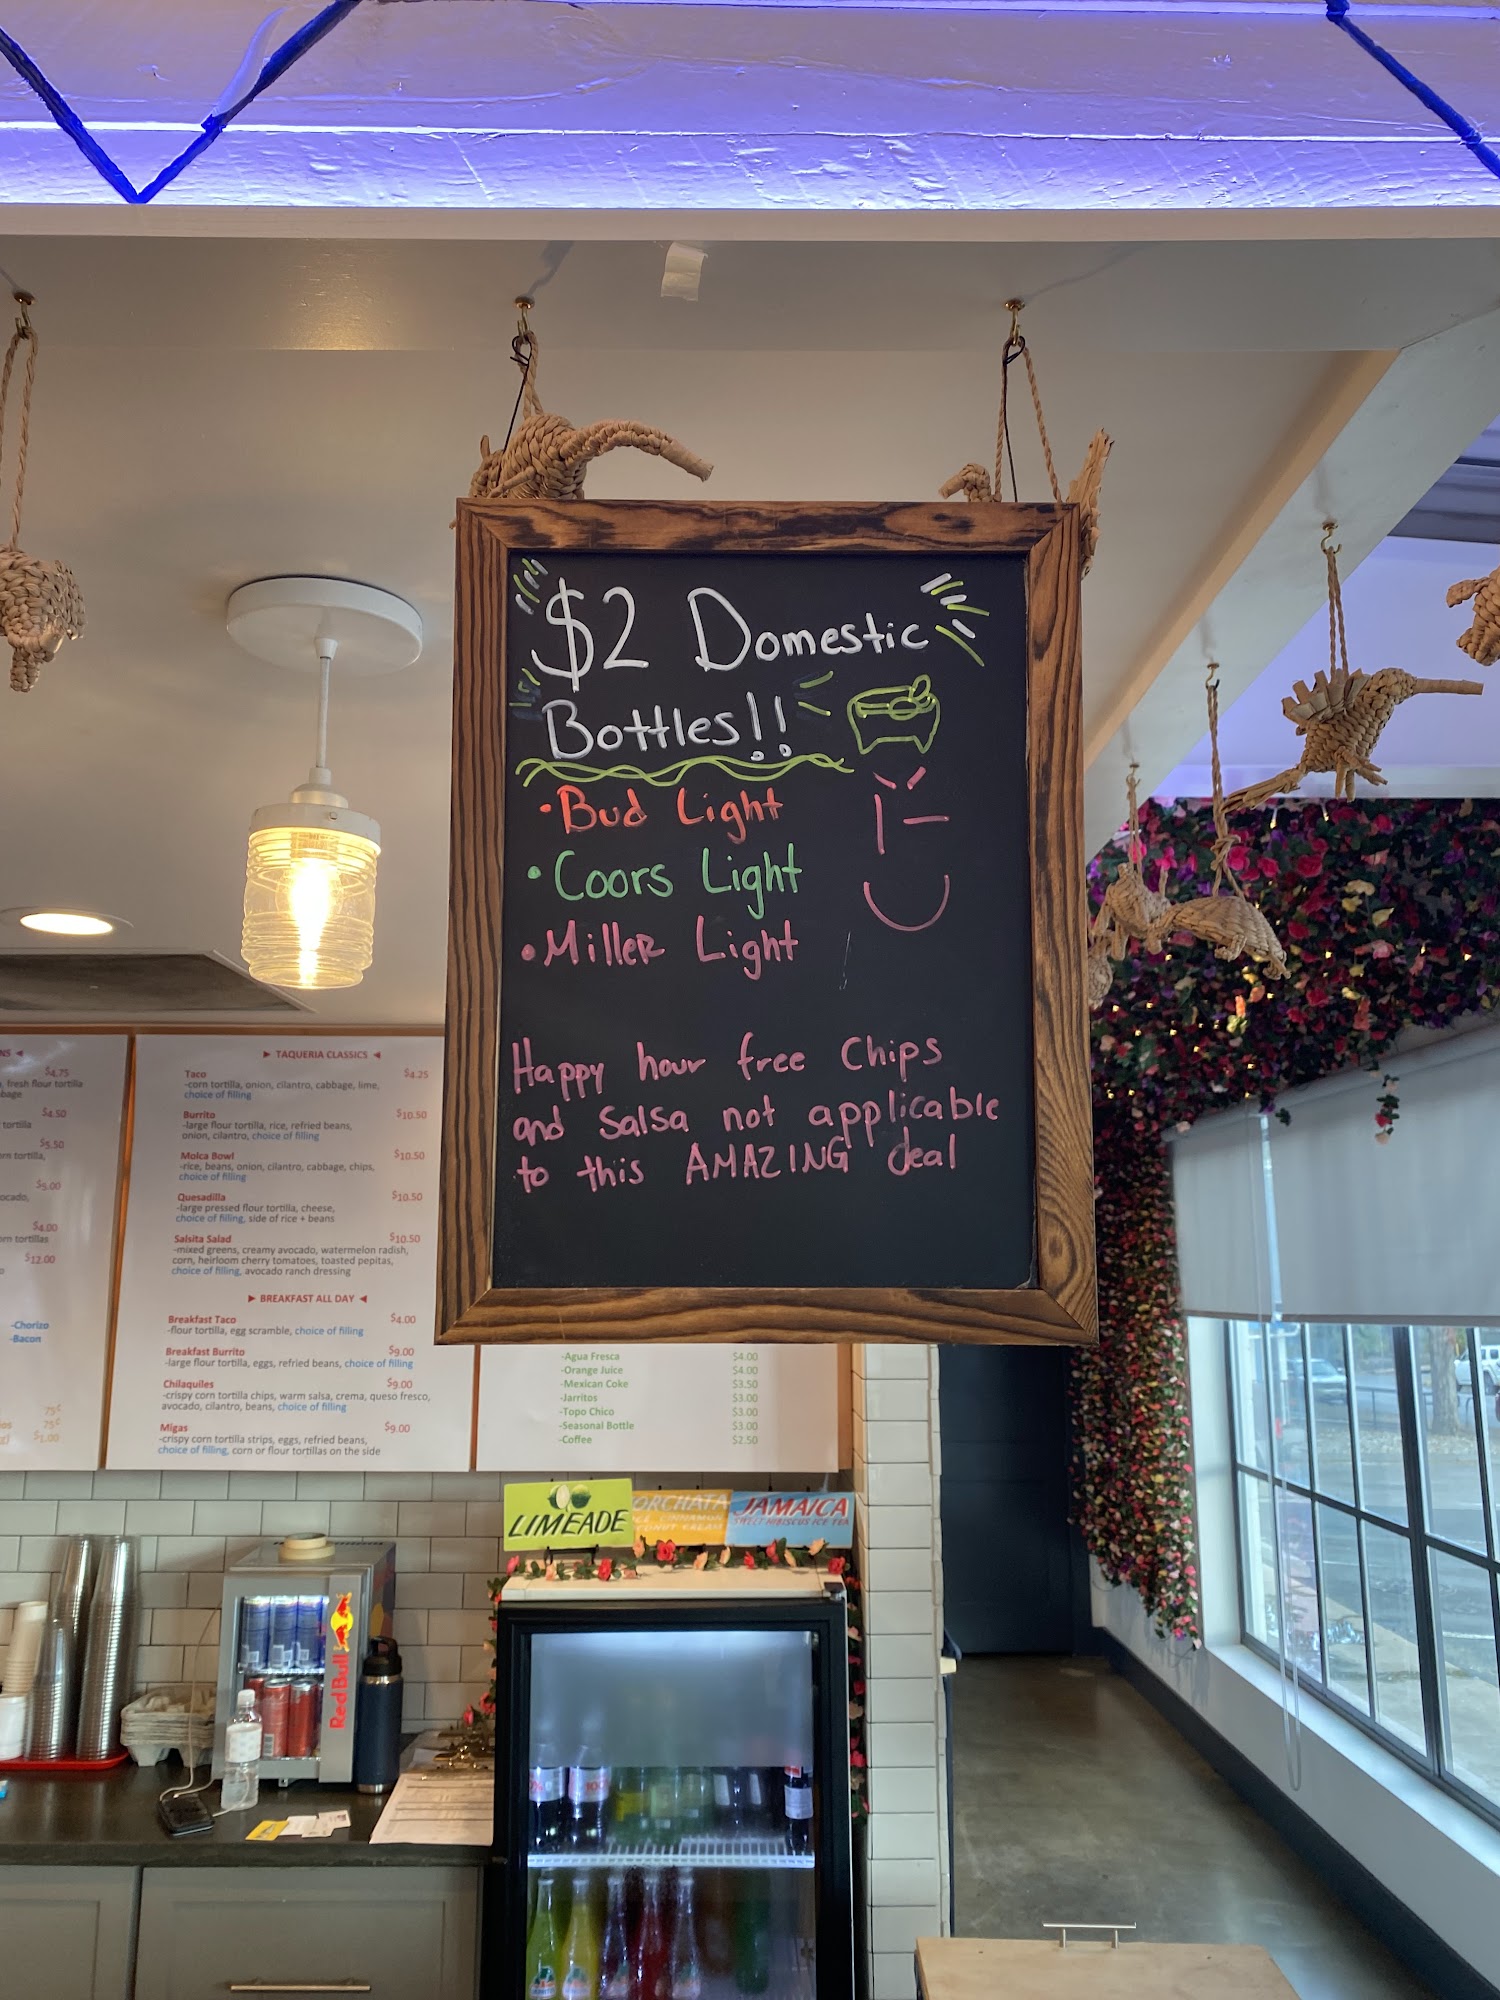 $2 Domestic
Bottles!!
•Bud Light
•Coors Light
•Miller Light
Happy hour free Chips
and Salsa not applicable
to this AMAZING deal
$4.75
fresh flour tortilla
$4.50
tortilla
$5.50
$5.00
$4.00
$12.00
-Chorizo
-Bacon
75¢
75¢
$1.00
► TAQUERIA CLASSICS ◄
Taco $4.25
-corn tortilla, onion, cilantro, cabbage, lime,
choice of filling
Burrito $10.50
-large flour tortilla, rice, refried beans,
onion, cilantro, choice of filling
Molca Bowl $10.50
-rice, beans, onion, cilantro, cabbage, chips,
choice of filling
Quesadilla $10.50
-large pressed flour tortilla, cheese,
choice of filling, side of rice + beans
Salsita Salad $10.50
-mixed greens, creamy avocado, watermelon radish,
corn, heirloom cherry tomatoes, toasted pepitas,
choice of filling, avocado ranch dressing
► BREAKFAST ALL DAY ◄
Breakfast Taco $4.00
-flour tortilla, egg scramble, choice of filling
Breakfast Burrito $9.00
-large flour tortilla, eggs, refried beans, choice of filling
Chilaquiles $9.00
-crispy corn tortilla chips, warm salsa, crema, queso fresco,
avocado, cilantro, beans, choice of filling
Migas $9.00
-crispy corn tortilla strips, eggs, refried beans,
choice of filling, corn or flour tortillas on the side
-Agua Fresca $4.00
-Orange Juice $4.00
-Mexican Coke $3.50
-Jarritos $3.00
-Topo Chico $3.00
-Seasonal Bottle $3.00
-Coffee $2.50
LIMEADE
ORCHATA
CINNAMON
CREAM
JAMAICA
SWEET HIBISCUS ICE TEA
Red Bull